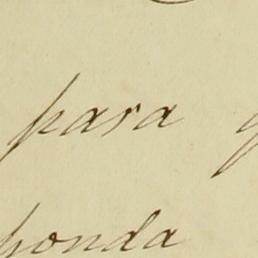 para
ponda